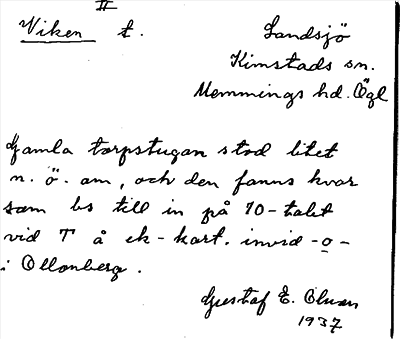 II
Viken t.
Landsjö
Kimstads sn.
Memmings hd. Ögl
Gamla torpstugan stod litet
n. ö. om, och den fanns kvar
som bs till in på 70-talet
vid T å ek-kart. invid -o-
i Ollonberg.
Gustaf E. Olsson
1937